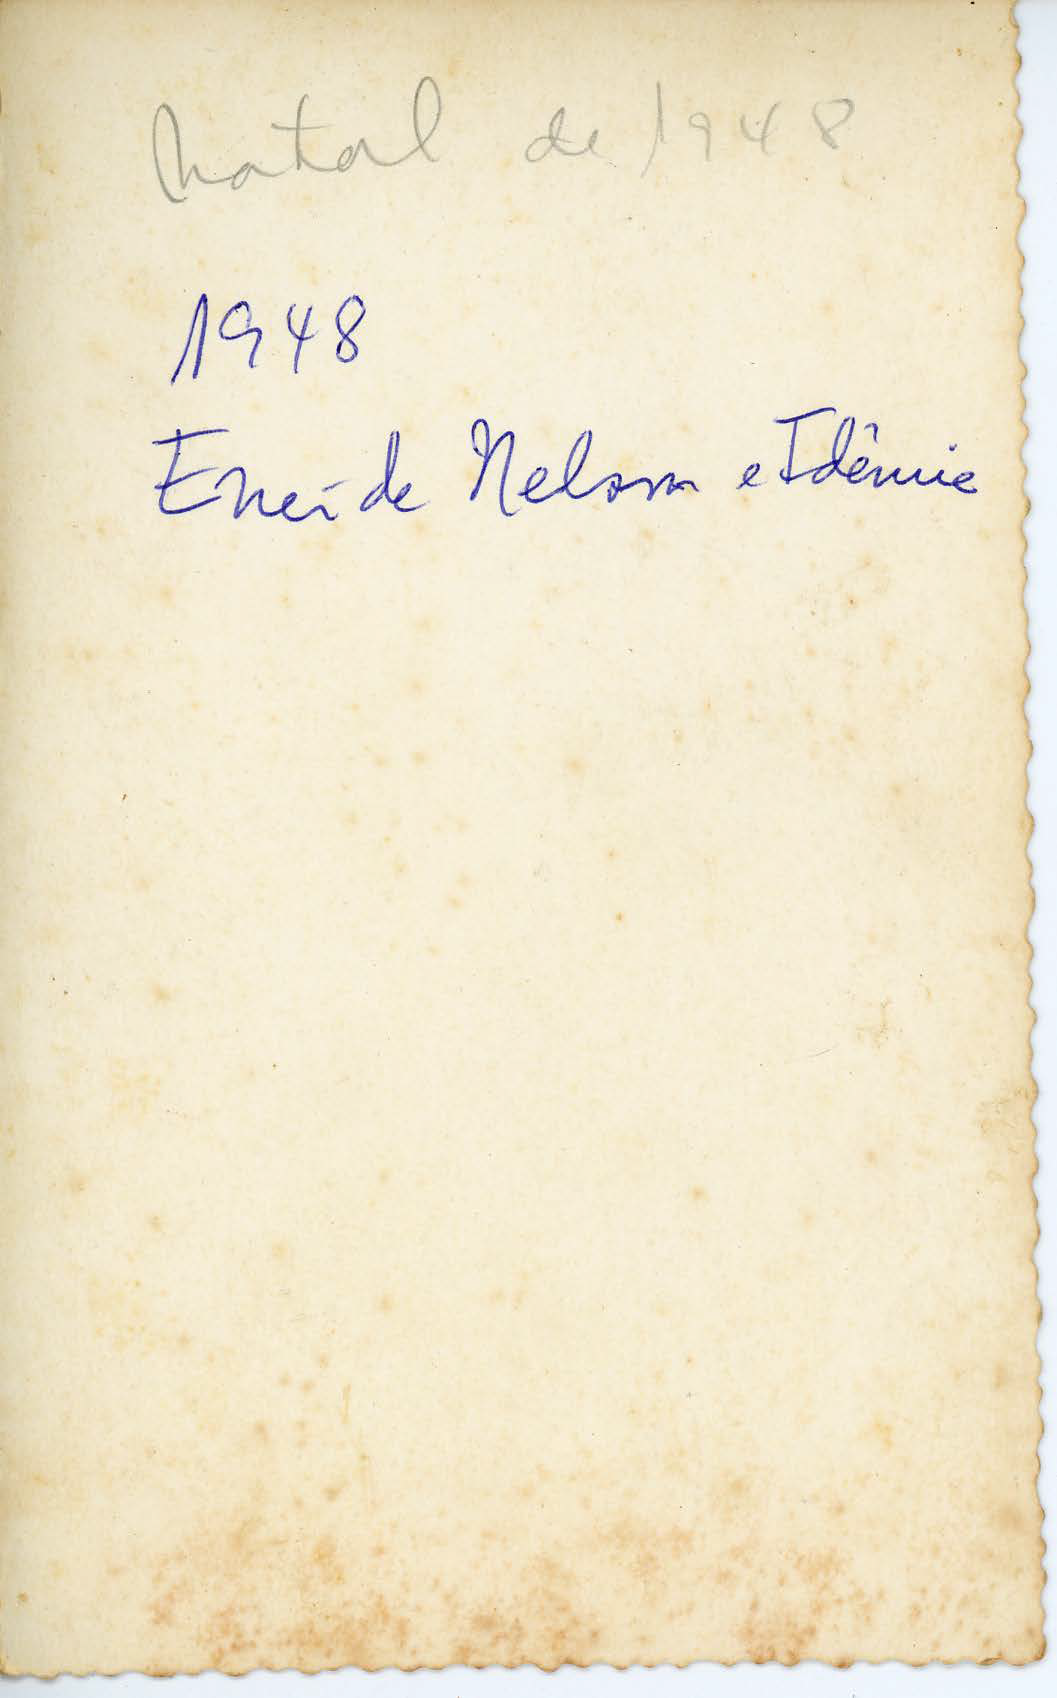 Natal de 1948
1948
Eneíde Nelson e Idêmie